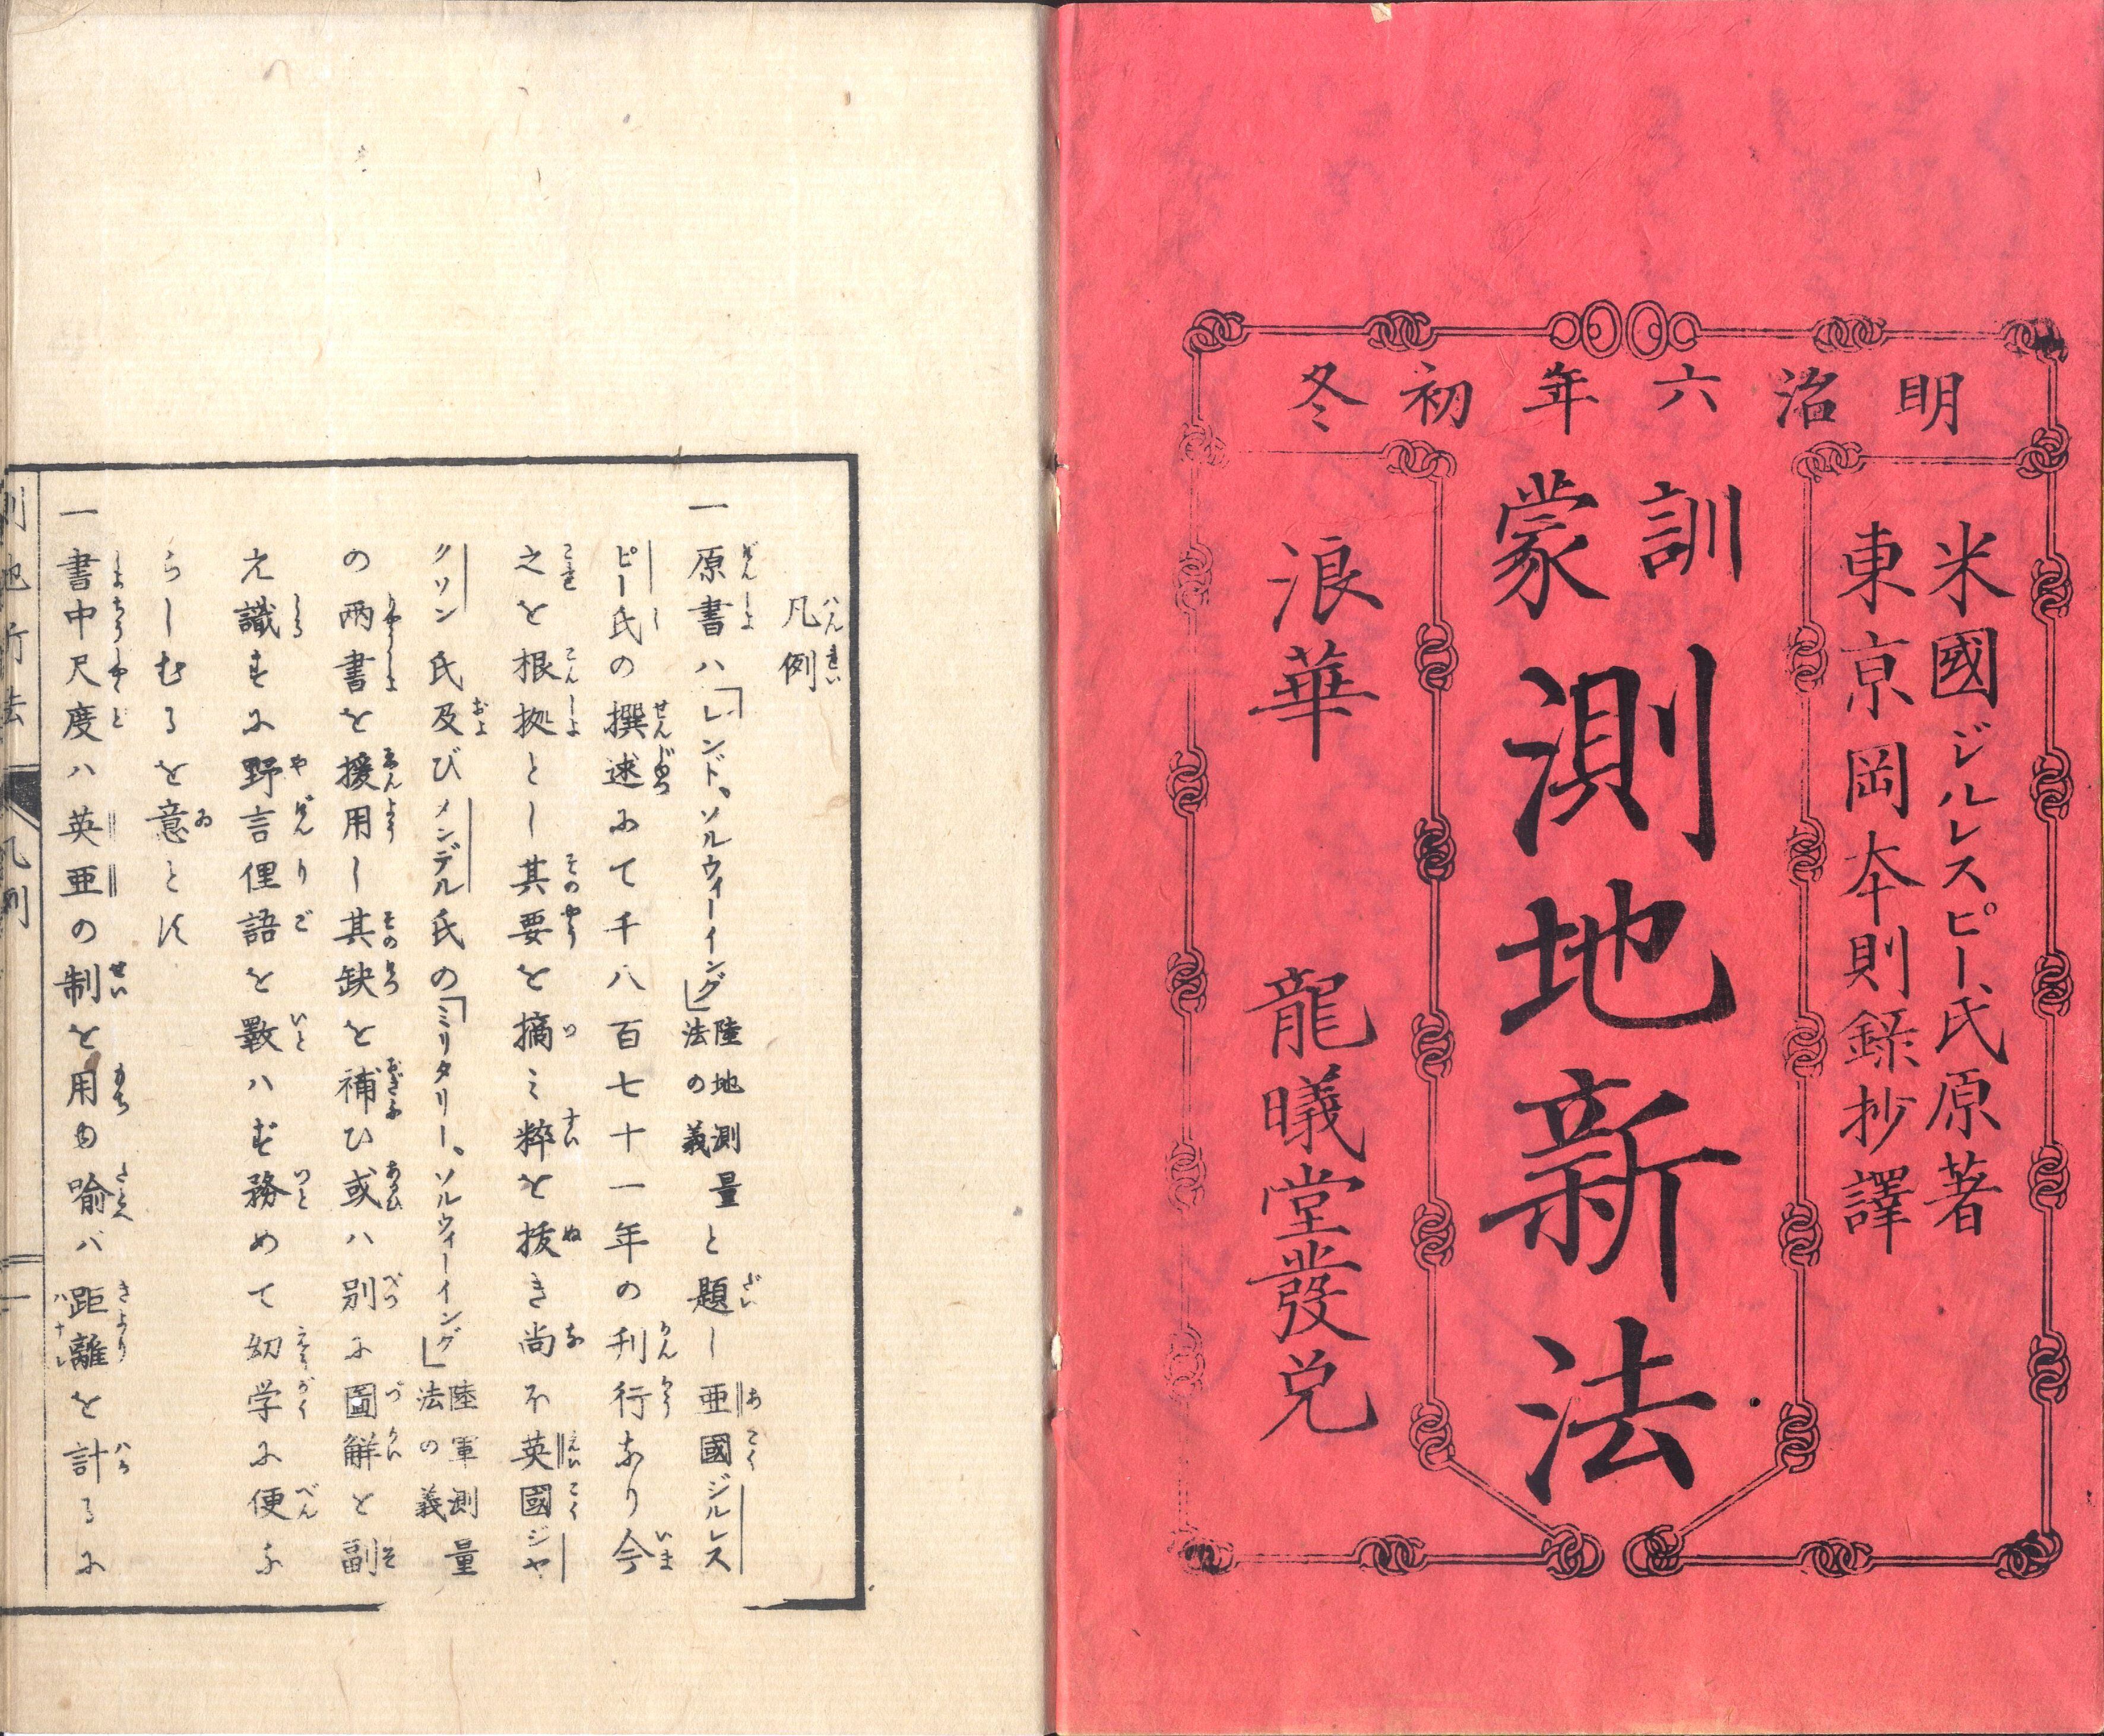 明治六年初冬
米國ジルレスピー、氏原著
東京岡本則録抄譯
訓蒙
測地新法
浪華　龍曦堂發兌
凡例
一原書ハ「レンド、ソルウィーイング」陸地測量法の義と題し亜國ジルレス
ピー氏の撰述にて千八百七十一年の刋行なり今
之を根拠とし其要を摘ミ粹を抜き尚ほ英國ジヤ
クソン氏及びメンデル氏の「ミリタリー、ソルウィーイング」陸軍測量法の義
の両書を援用し其缺を補ひ或ハ別に圖解を副
え識すに野言俚語を斁ハず務めて幼学に便な
らしむるを意とす
一書中尺度ハ英亜の制を用ゆ喩バ距離を計るに